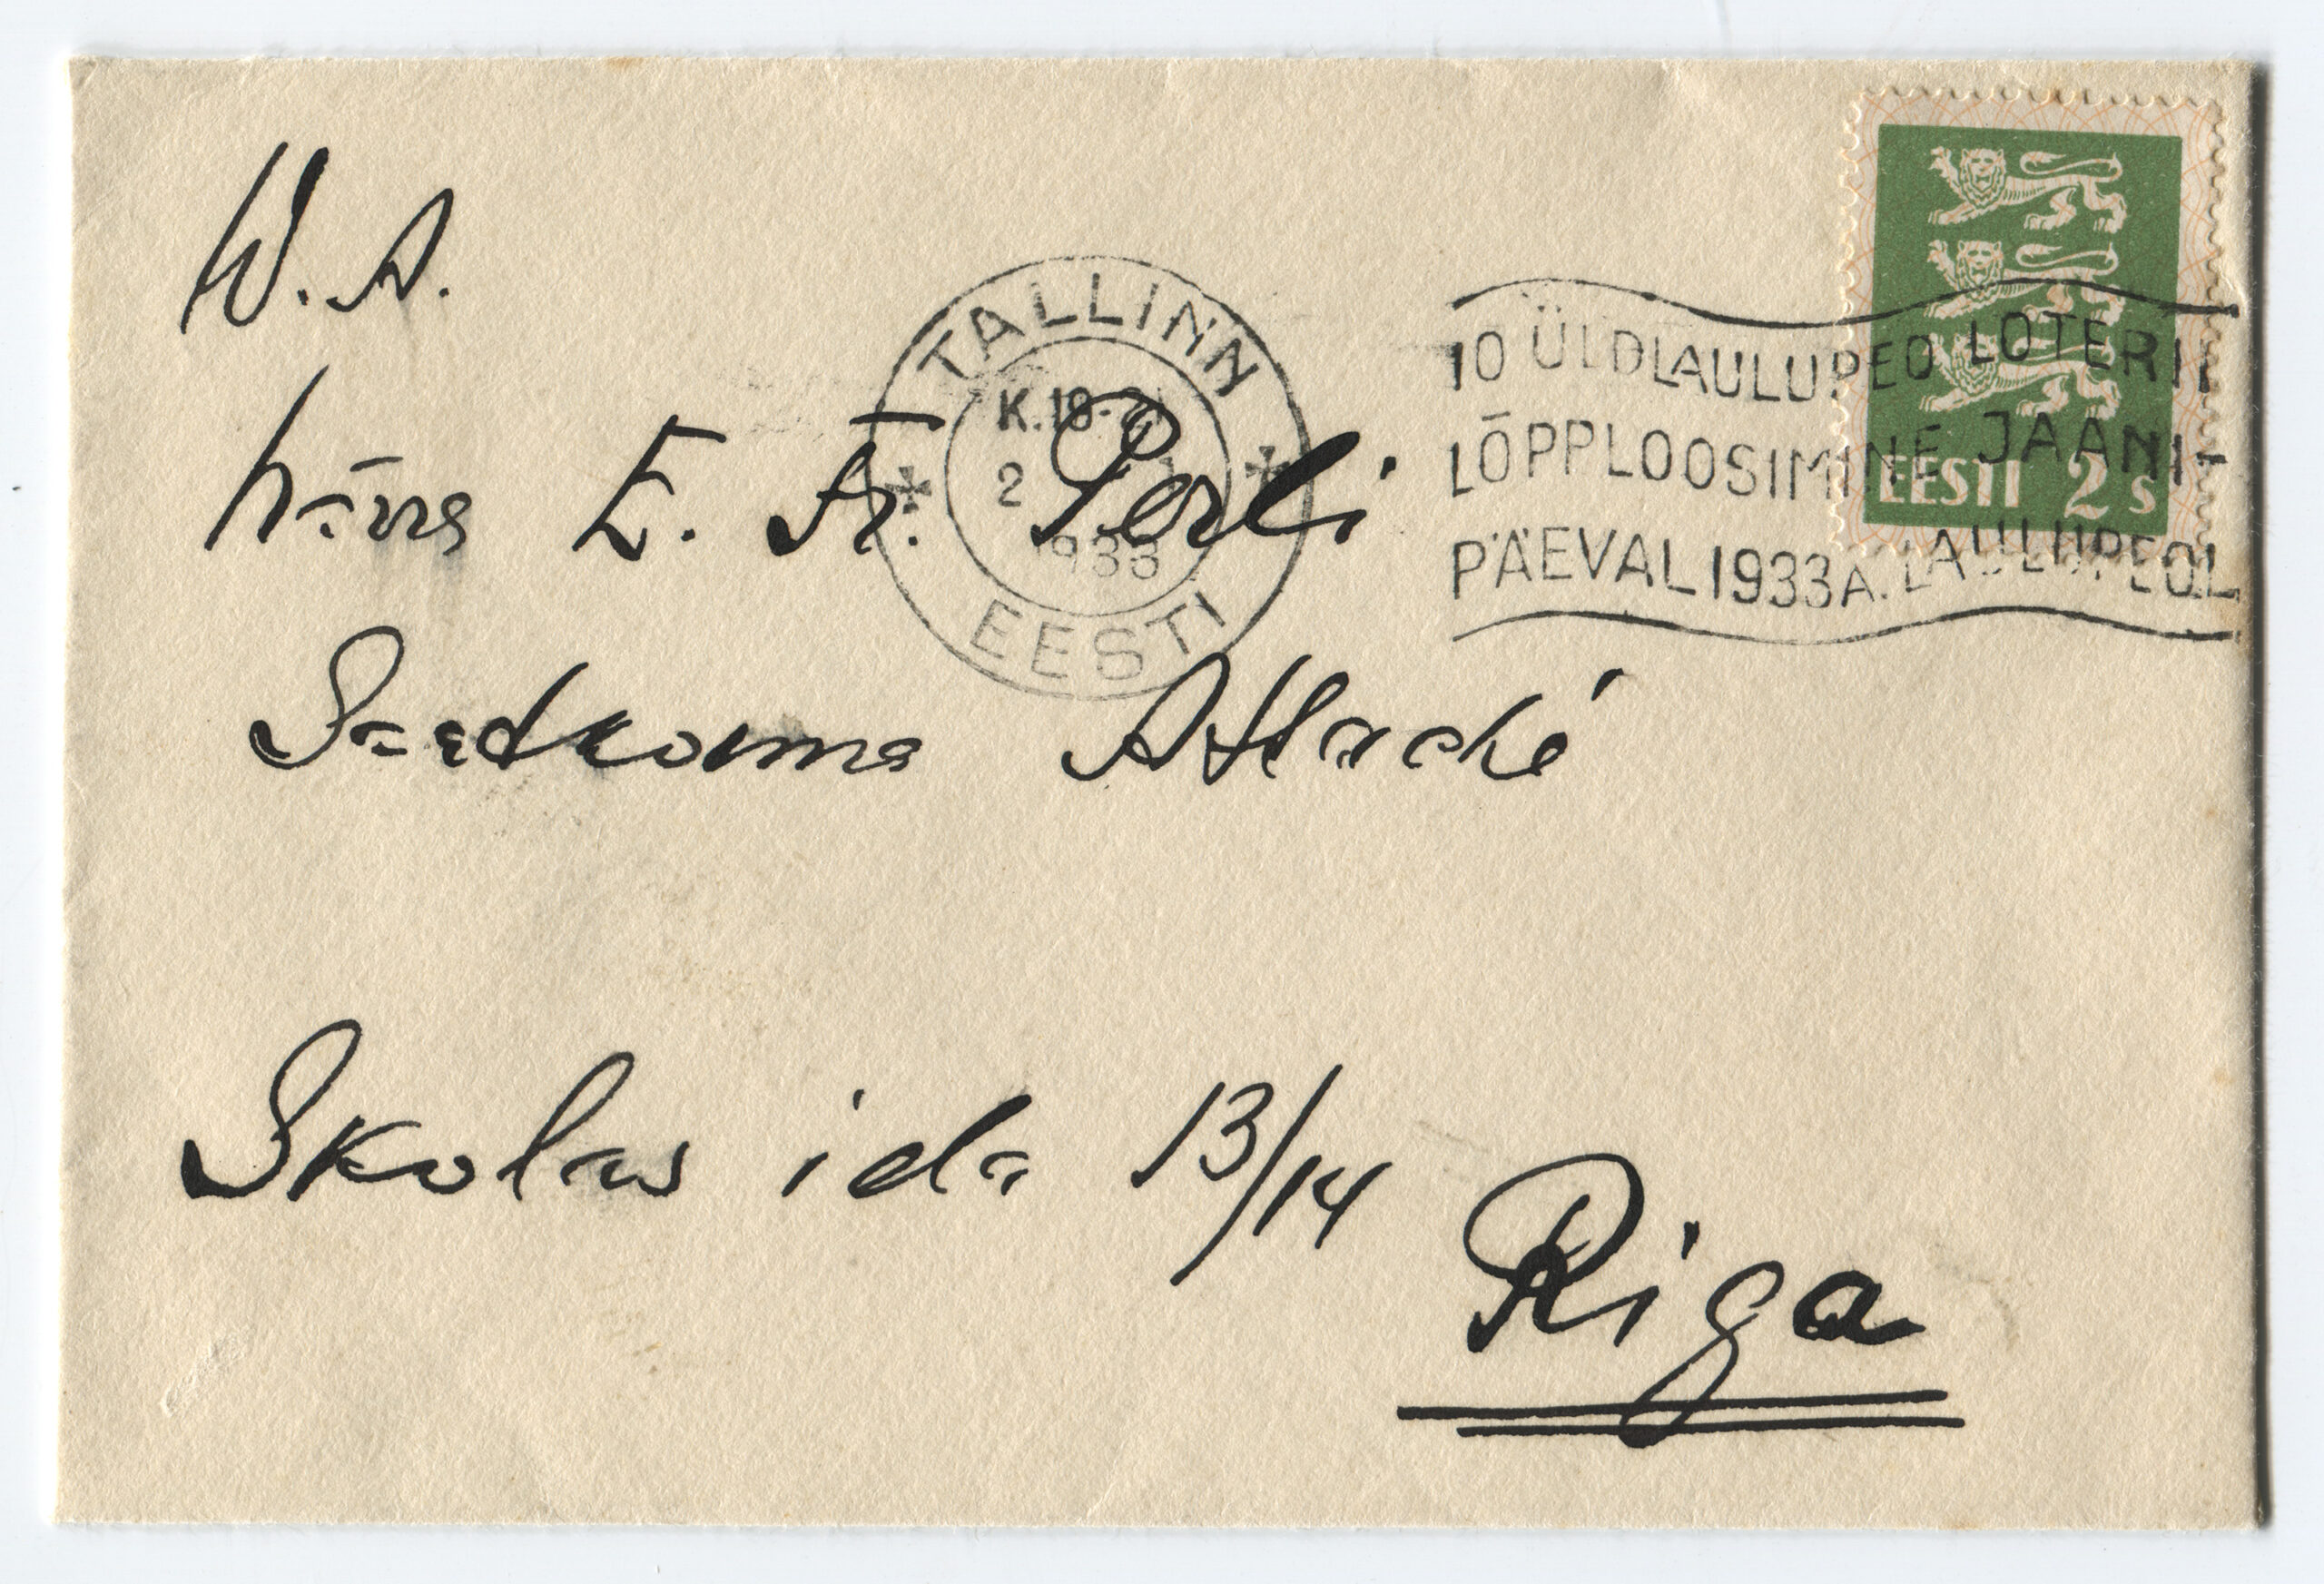 W. A.
härra E. Fr. Perli
Saatkonna Attaché
Skolas iela 13/14
Riga
TALLINN
K.18-21
2
1933
EESTI
10 ÜLDLAULUPEO LOTERII
LÕPPLOOSIMINE JAANI-
PÄEVAL 1933 A. LAULUPEOL
EESTI 2 s